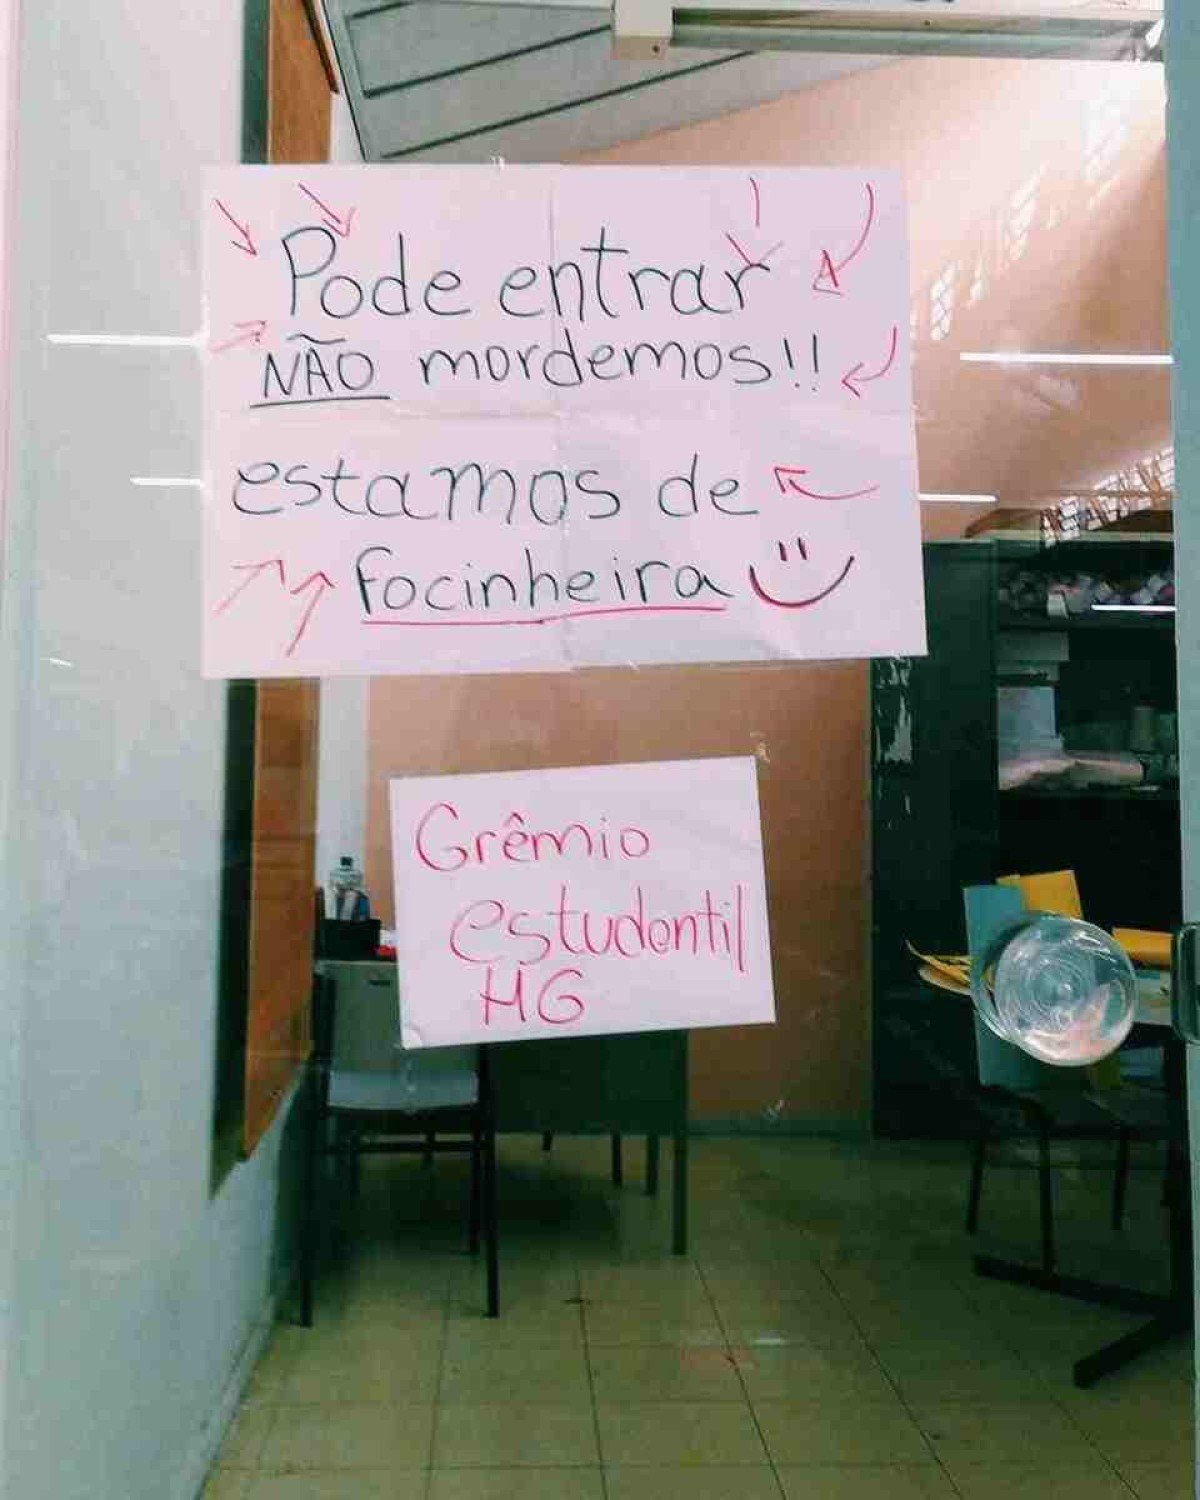 Pode entrar
NÃO mordemos!!
estamos de
focinheira
Grêmio
estudantil
MG